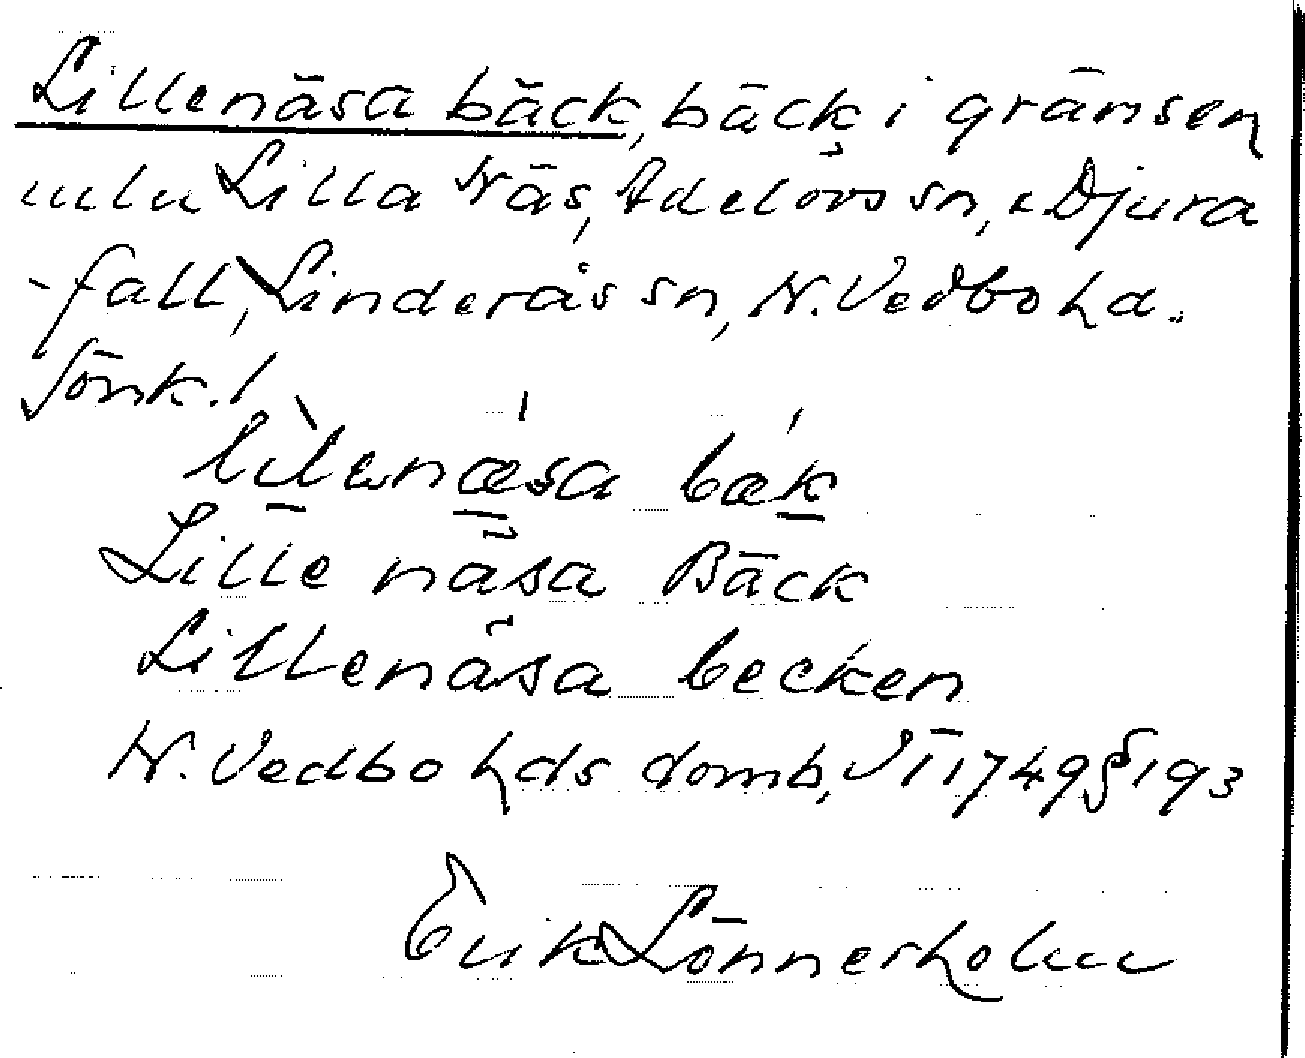 Lillenäsa bäck, bäck i gränsen
mln Lilla Näs, Adelövs sn, o Djura
-fall, Linderås sn, N. Vedbo hd.
Jönk. l
lìlenǽsa bǽk
Lille näsa Bäck
Lillenäsa becken
N. Vedbo hds domb, VT 1749 § 193
Erik Lönnerholm